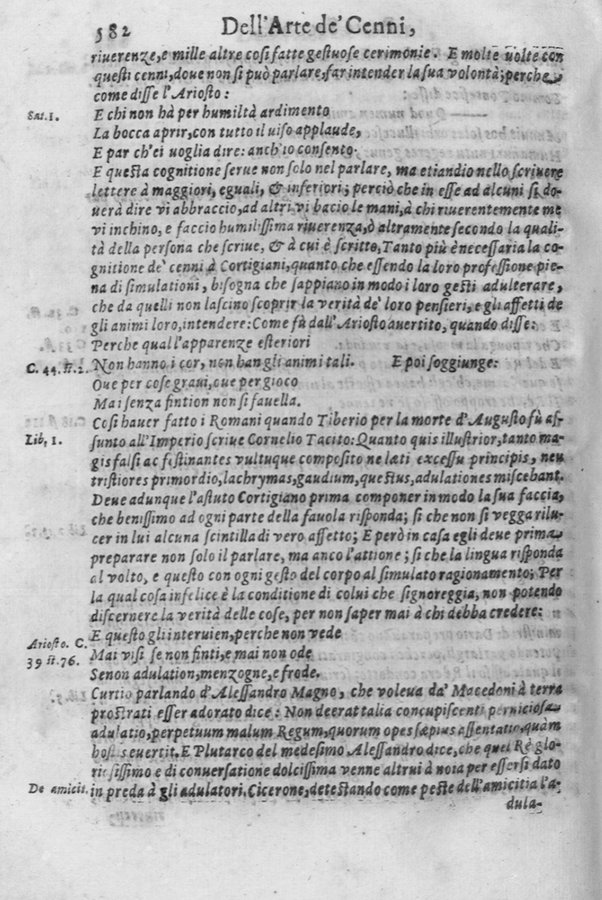 582 Dell'Arte de' Cenni,
riuerenze, e mille altre cosi fatte gestuose cerimonie. E molte uolte con
questi cenni, doue non si può parlare, far intender la sua volontà; perche
come disse l'Ariosto:
Sat. 1. E chi non hà per humiltà ardimento
La bocca aprir, con tutto il uiso applaude,
E par ch'ei uoglia dire: anch'io consento.
E questa cognitione serue non solo nel parlare, ma etiandio nello scriuere
lettere à maggiori, eguali, & inferiori; perciò che in esse ad alcuni si do-
uerà dire vi abbraccio, ad altri vi bacio le mani, à chi riuerentemente me
vi inchino, e faccio humilissima riuerenza, ò altramente secondo la quali-
tà della persona che scriue, & à cui è scritto, Tanto più è necessaria la co-
gnitione de' cenni à Cortigiani, quanto che essendo la loro professione pie-
na di simulationi, bisogna che sappiano in modo i loro gesti adulterare,
che da quelli non lascino scoprir la verità de' loro pensieri, e gli affetti de
gli animi loro, intendere: Come fù dall'Ariosto auertito, quando disse:
Perche qual l'apparenze esteriori
C. 44. st. 2. Non hanno i cor, non han gli animi tali. E poi soggiunge:
Oue per cose graui, oue per gioco
Mai senza fintion non si fauella.
Cosi hauer fatto i Romani quando Tiberio per la morte d'Augusto fù as-
Lib. 1. sunto all'Imperio scriue Cornelio Tacito: Quanto quis illustrior, tanto ma-
gis falsi ac festinantes vultuque composito ne læti excessu principis, neu
tristiores primordio, lachrymas, gaudium, questus, adulationes miscebant.
Deue adunque l'astuto Cortigiano prima componer in modo la sua faccia,
che benissimo ad ogni parte della fauola risponda; si che non si vegga rilu-
cer in lui alcuna scintilla di vero affetto; E però in casa egli deue prima
preparare non solo il parlare, ma anco l'attione; si che la lingua risponda
al volto, e questo con ogni gesto del corpo al simulato ragionamento; Per
la qual cosa infelice è la conditione di colui che signoreggia, non potendo
discernere la verità delle cose, per non saper mai à chi debba credere:
Ariosto. C. E questo gli interuien, perche non vede
39 st. 76. Mai visi se non finti, e mai non ode
Senon adulation, menzogne, e frode.
Curtio parlando d'Alessandro Magno, che voleua da' Macedoni à terra
prostrati esser adorato dice: Non deerat talia concupiscenti perniciosa
adulatio, perpetuum malum Regum, quorum opes sæpius assentatio, quam
hostis euertit. E Plutarco del medesimo Alessandro dice, che quel Rè glo-
riosissimo e di conuersatione dolcissima venne altrui à noia per essersi dato
De amicit. in preda à gli adulatori, Cicerone, detestando come peste dell'amicitia l'a-
dula-